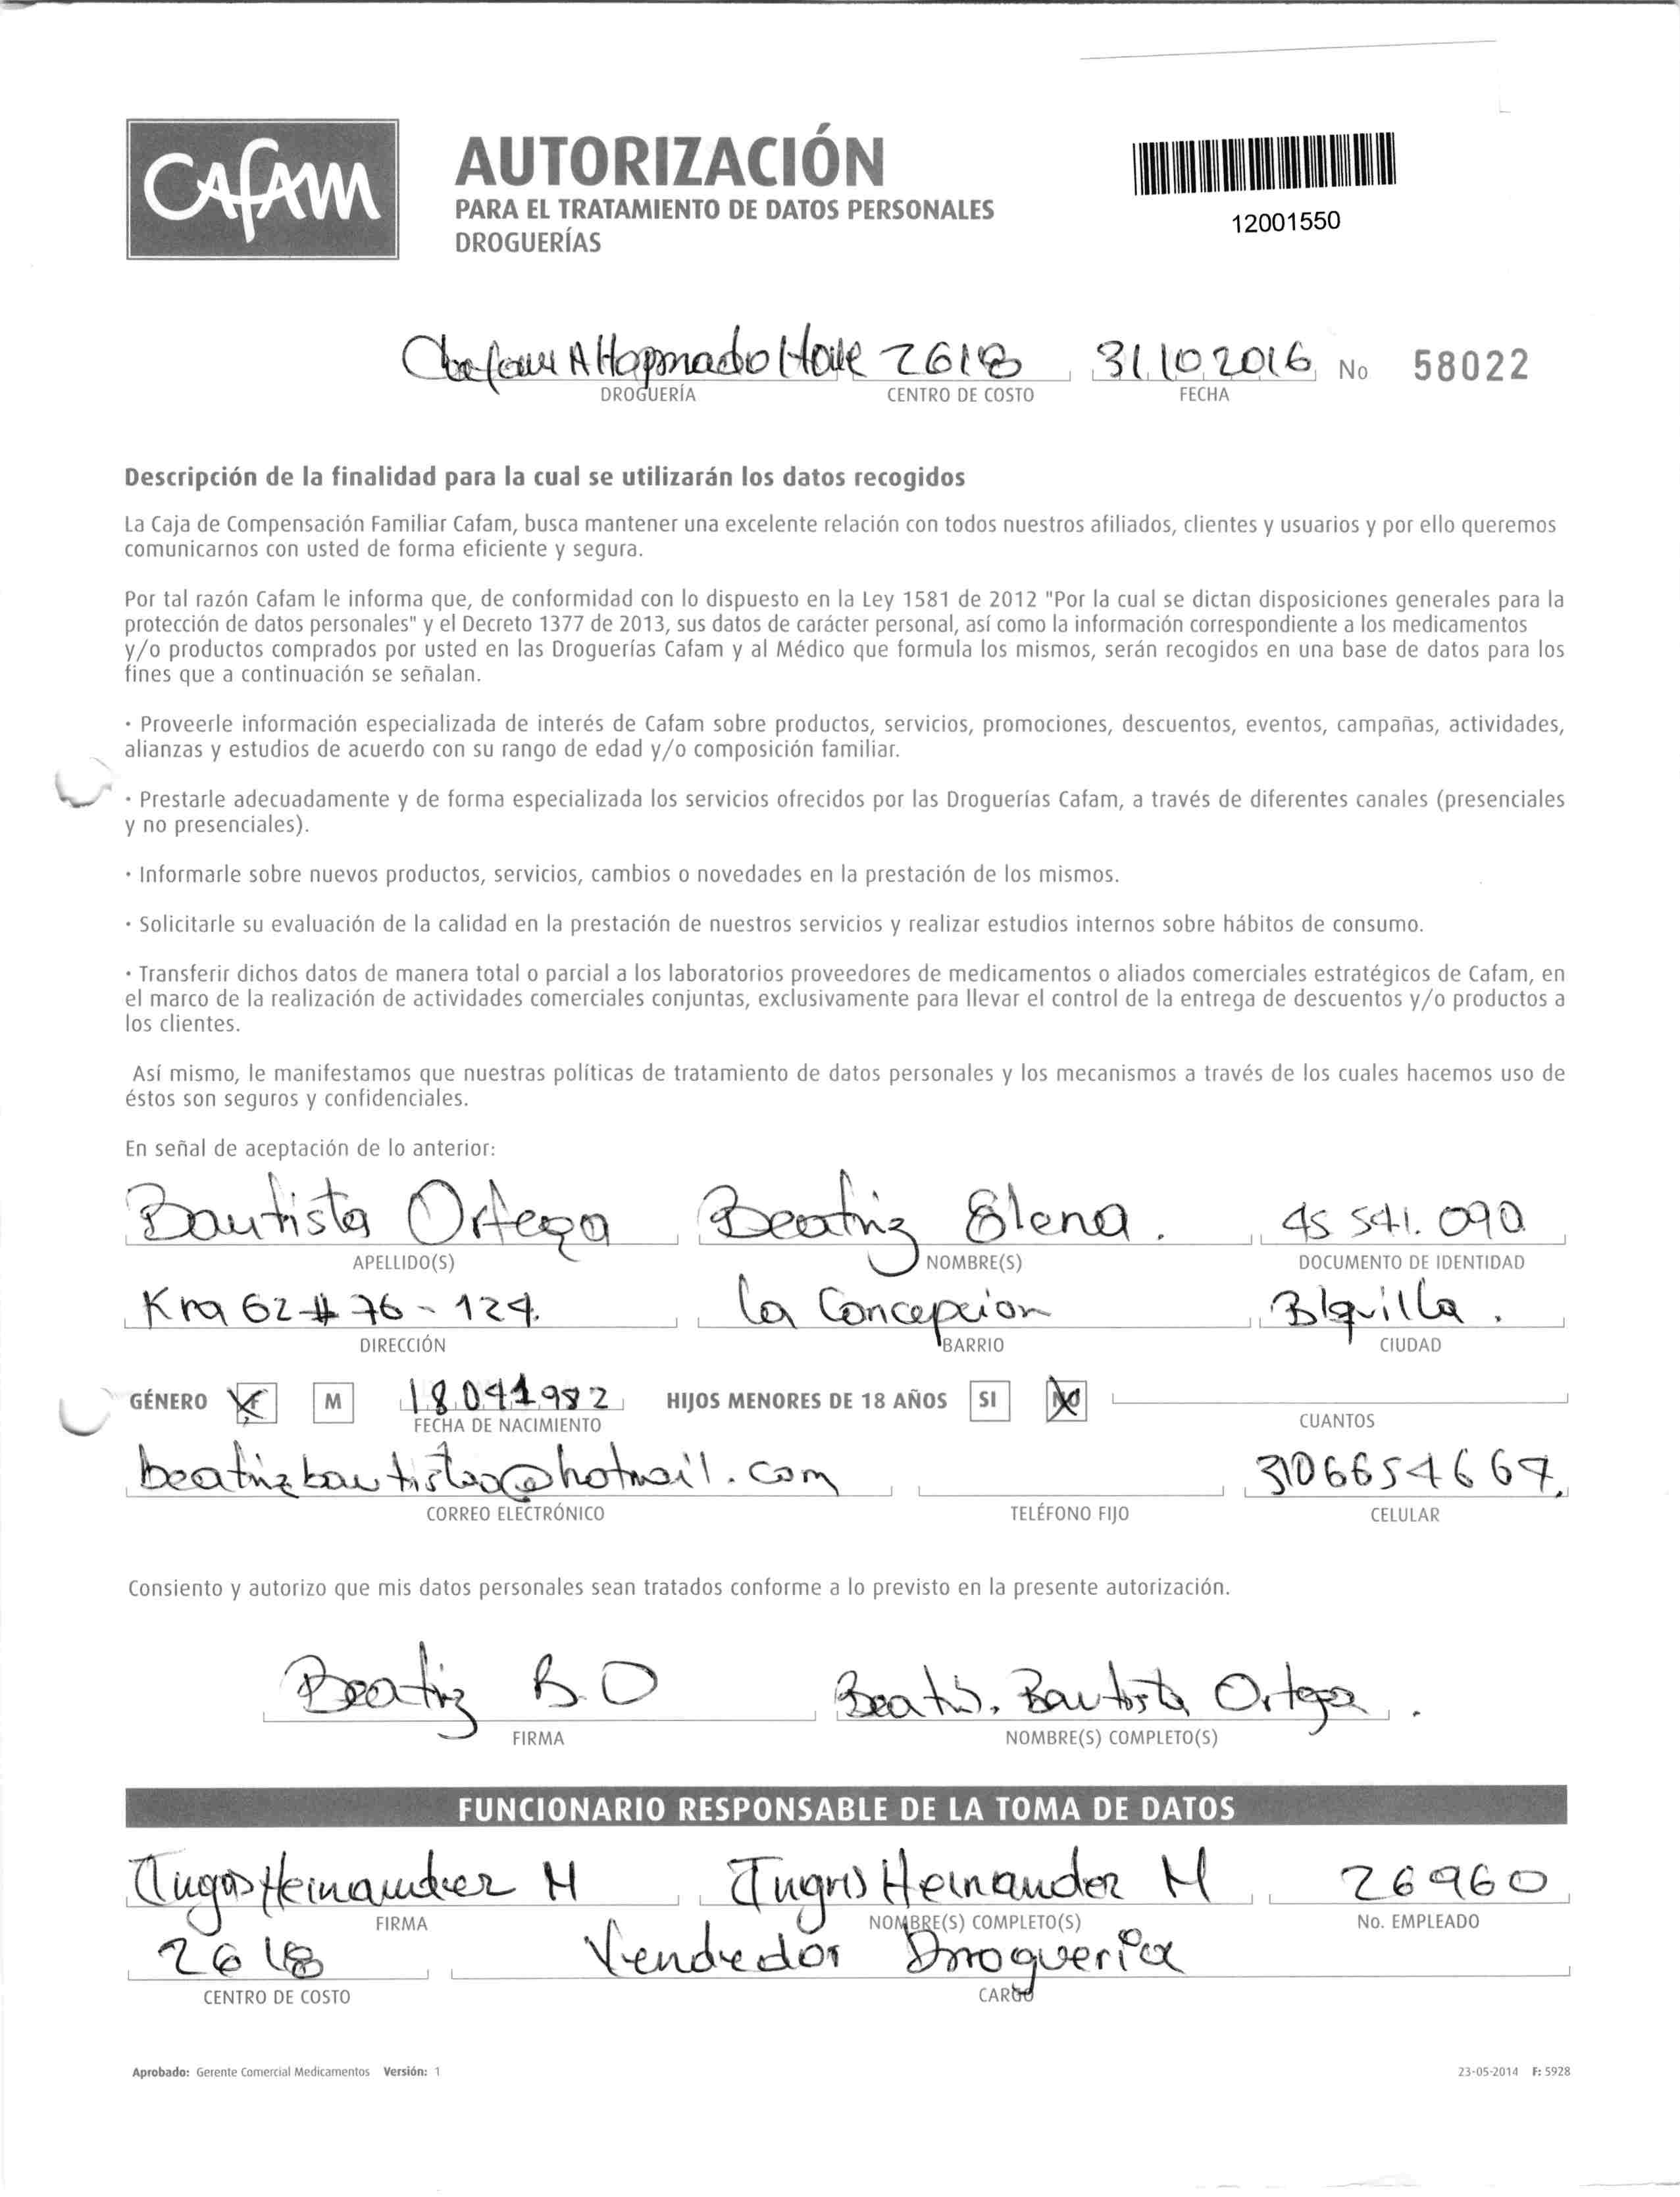 CAFAM
AUTORIZACIÓN
PARA EL TRATAMIENTO DE DATOS PERSONALES
DROGUERÍAS
12001550
2618 31 10 2016 No 58022
DROGUERÍA CENTRO DE COSTO FECHA
Descripción de la finalidad para la cual se utilizarán los datos recogidos
La Caja de Compensación Familiar Cafam, busca mantener una excelente relación con todos nuestros afiliados, clientes y usuarios y por ello queremos
comunicarnos con usted de forma eficiente y segura.
Por tal razón Cafam le informa que, de conformidad con lo dispuesto en la Ley 1581 de 2012 "Por la cual se dictan disposiciones generales para la
protección de datos personales" y el Decreto 1377 de 2013, sus datos de carácter personal, así como la información correspondiente a los medicamentos
y/o productos comprados por usted en las Droguerías Cafam y al Médico que formula los mismos, serán recogidos en una base de datos para los
fines que a continuación se señalan.
· Proveerle información especializada de interés de Cafam sobre productos, servicios, promociones, descuentos, eventos, campañas, actividades,
alianzas y estudios de acuerdo con su rango de edad y/o composición familiar.
· Prestarle adecuadamente y de forma especializada los servicios ofrecidos por las Droguerías Cafam, a través de diferentes canales (presenciales
y no presenciales).
· Informarle sobre nuevos productos, servicios, cambios o novedades en la prestación de los mismos.
· Solicitarle su evaluación de la calidad en la prestación de nuestros servicios y realizar estudios internos sobre hábitos de consumo.
· Transferir dichos datos de manera total o parcial a los laboratorios proveedores de medicamentos o aliados comerciales estratégicos de Cafam, en
el marco de la realización de actividades comerciales conjuntas, exclusivamente para llevar el control de la entrega de descuentos y/o productos a
los clientes.
Así mismo, le manifestamos que nuestras políticas de tratamiento de datos personales y los mecanismos a través de los cuales hacemos uso de
éstos son seguros y confidenciales.
En señal de aceptación de lo anterior:
Bautista Ortega Beatriz Elena. 45 541. 090
APELLIDO(S) NOMBRE(S) DOCUMENTO DE IDENTIDAD
Kra 62 # 76 - 124. la Concepcion Blquilla.
DIRECCIÓN BARRIO CIUDAD
GÉNERO F M 18 04 1982 HIJOS MENORES DE 18 AÑOS SI NO
FECHA DE NACIMIENTO CUANTOS
beatrizbautistao@hotmail.com 3106654667.
CORREO ELECTRÓNICO TELÉFONO FIJO CELULAR
Consiento y autorizo que mis datos personales sean tratados conforme a lo previsto en la presente autorización.
Beatriz B. O Beatriz. Bautista Ortega.
FIRMA NOMBRE(S) COMPLETO(S)
FUNCIONARIO RESPONSABLE DE LA TOMA DE DATOS
Ingris Hernandez M Ingris Hernandez M 26960
FIRMA NOMBRE(S) COMPLETO(S) No. EMPLEADO
2618 Vendedor Drogueria
CENTRO DE COSTO CARGO
Aprobado: Gerente Comercial Medicamentos Versión: 1 23-05-2014 F: 5928